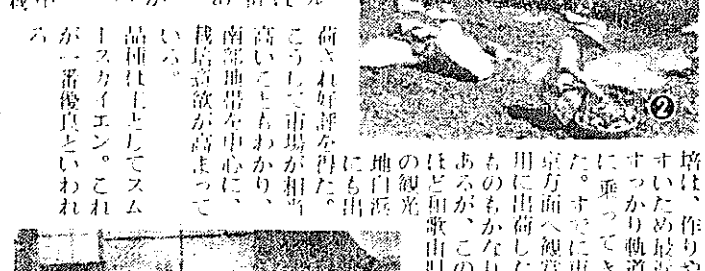 培は、作りや
すいため最近
すっかり軌道
に乗ってき
た。すでに東
京方面へ観賞
用に出荷した
ものもかなり
あるが、この
ほど和歌山県
の観光
地白浜
にも出
荷され好評を得た。
こうして市場が相当
高いこともわかり、
南部地帯を中心に、
栽培意欲が高まって
いる。
品種は主としてスム
ースカイエン。これ
が一番優良といわれ
る
❷